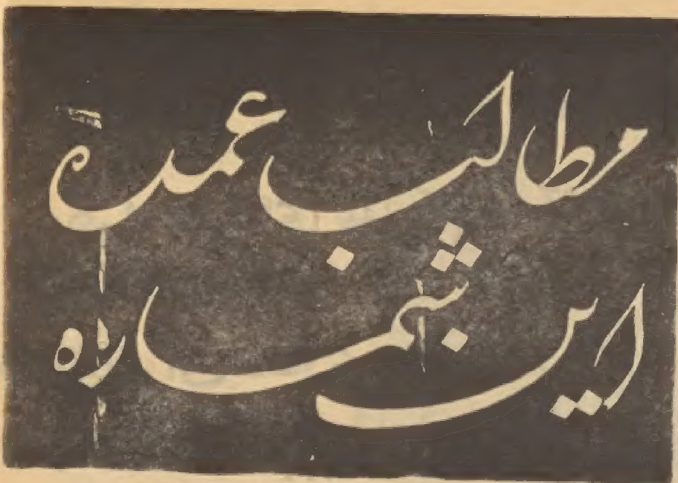 مطالب عمده
این شماره